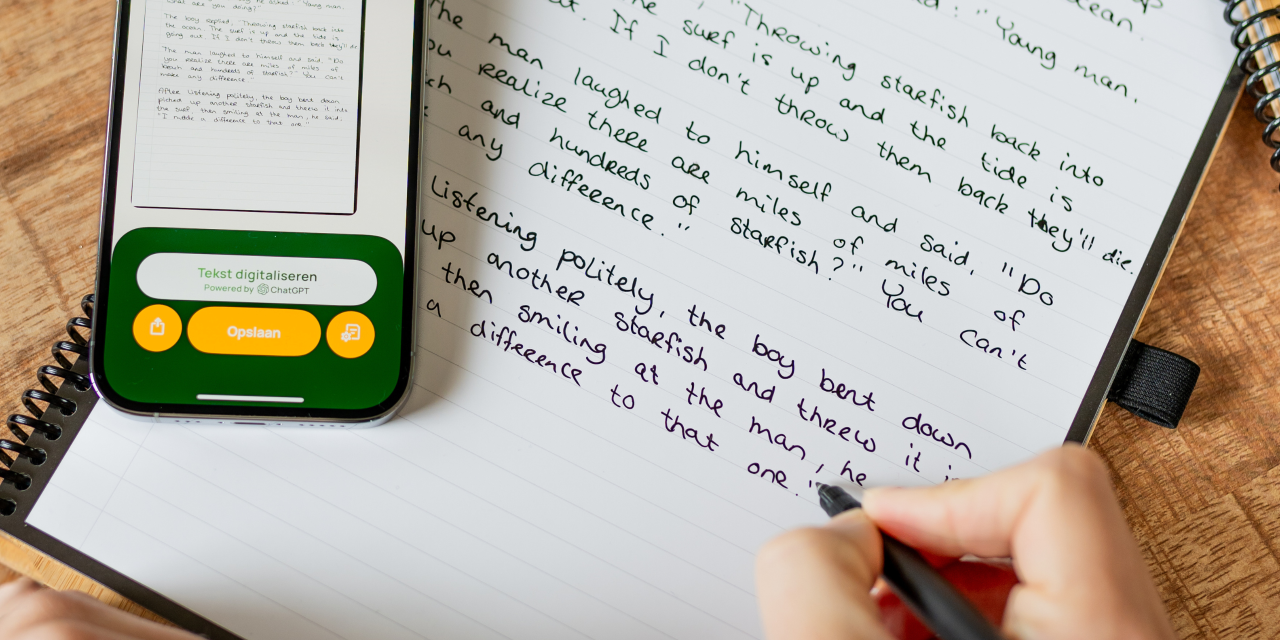 he asked: "Young man.
what are you doing?"
The boy replied, "Throwing starfish back into
the ocean. The surf is up and the tide is
going out. If I don't throw them back they'll die.
The man laughed to himself and said, "Do
you realize there are miles of miles of
beach and hundreds of starfish?" You can't
make any difference."
After Listening politely, the boy bent down
picked up another starfish and threw it into
the surf. then smiling at the man, he said.
"I made a difference to that one."
Tekst digitaliseren
Powered by ChatGPT
Opslaan
ocean.
: "Young man.
"Throwing starfish back into
he surf is up and the tide is
ut. If I don't throw them back they'll die.
The man laughed to himself and said, "Do
ou realize there are miles of miles of
ch and hundreds of starfish?" You can't
any difference."
Listening politely, the boy bent down
up another starfish and threw it i
then smiling at the man, he
a difference to that one."